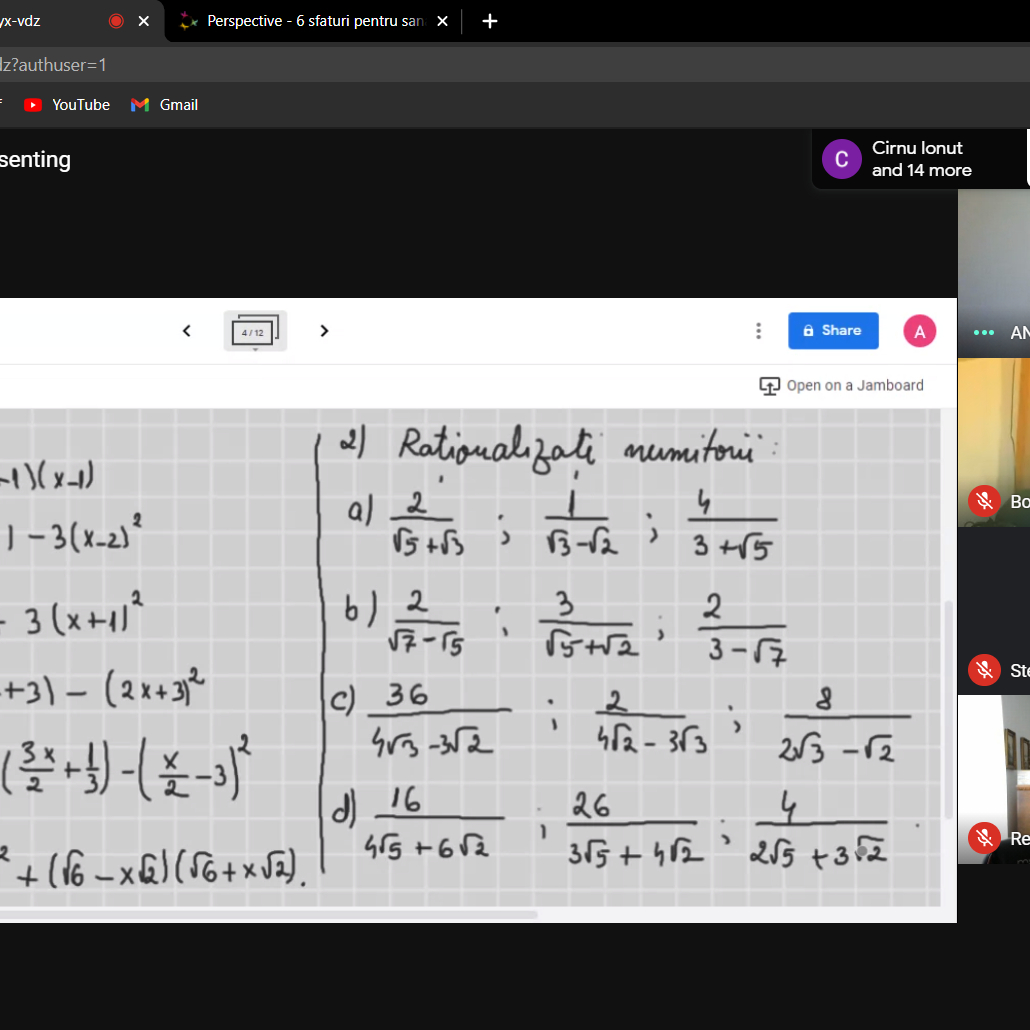 yx-vdz
Perspective - 6 sfaturi pentru san
dz?authuser=1
YouTube
Gmail
senting
C
Cirnu Ionut
and 14 more
4 / 12
Share
A
Open on a Jamboard
AN
Bo
Ste
Re
-1)(x-1)
1 - 3(x-2)²
- 3(x+1)²
+3) - (2x+3)²
(3x/2 + 1/3) - (x/2 - 3)²
² + (√6 - x√2)(√6 + x√2).
2) Raționalizați numitorii:
a) 2/(√5 + √3) ; 1/(√3 - √2) ; 4/(3 + √5)
b) 2/(√7 - √5) ; 3/(√5 + √2) ; 2/(3 - √7)
c) 36/(4√3 - 3√2) ; 2/(4√2 - 3√3) ; 8/(2√3 - √2)
d) 16/(4√5 + 6√2) ; 26/(3√5 + 4√2) ; 4/(2√5 + 3√2) .